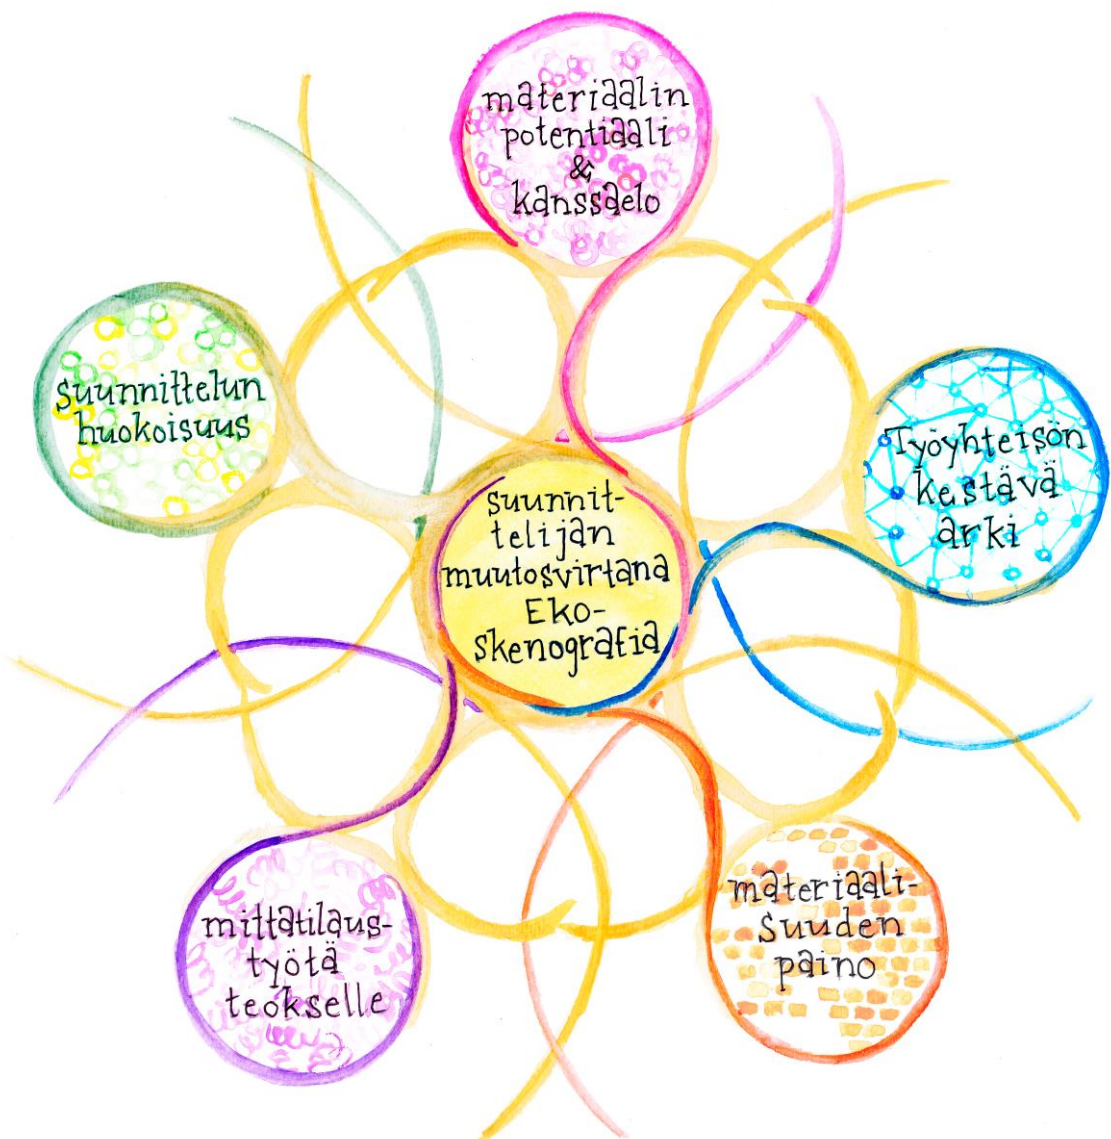 materiaalin
potentiaali
&
kanssaelo
suunnittelun
huokoisuus
Työyhteisön
kestävä
arki
suunnit-
telijan
muutosvirtana
Eko-
skenografia
mittatilaus-
työtä
teokselle
materiaali-
suuden
paino